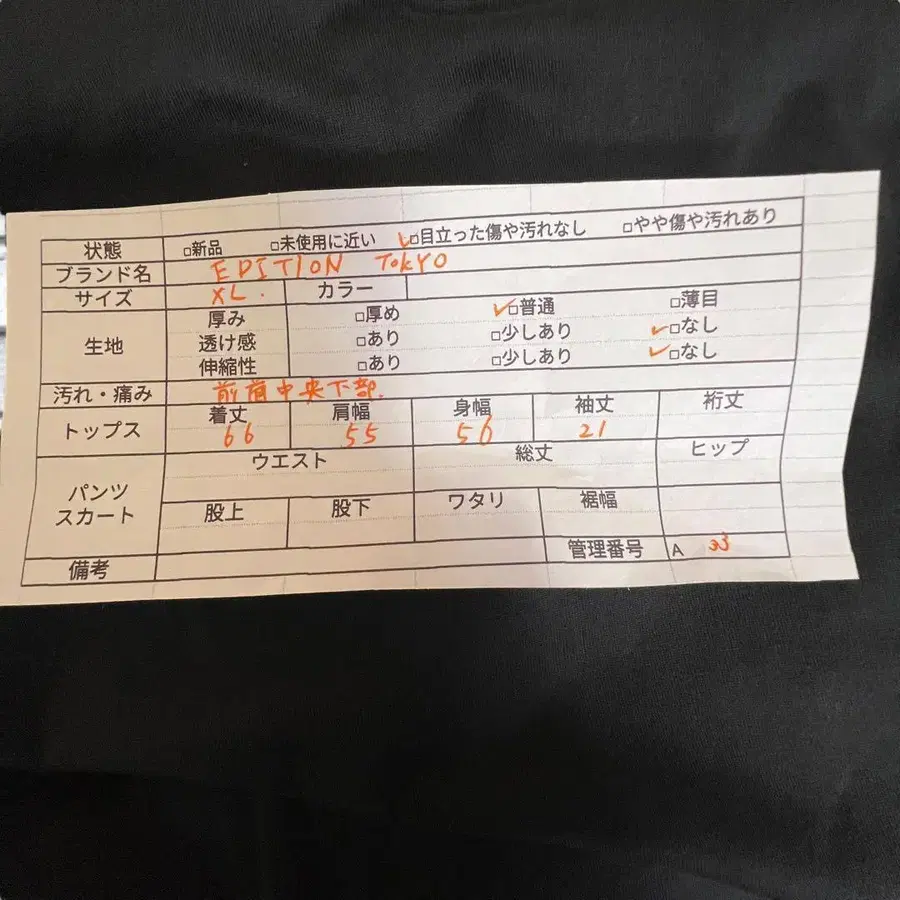 状態 □新品 □未使用に近い ✓□目立った傷や汚れなし □やや傷や汚れあり
ブランド名 EDITION TOKYO
サイズ XL. カラー
生地 厚み □厚め ✓□普通 □薄目
透け感 □あり □少しあり ✓□なし
伸縮性 □あり □少しあり ✓□なし
汚れ・痛み 前面中央下部.
トップス 着丈 肩幅 身幅 袖丈 裄丈
66 55 56 21
パンツ スカート ウエスト 総丈 ヒップ
股上 股下 ワタリ 裾幅
備考 管理番号 A 33